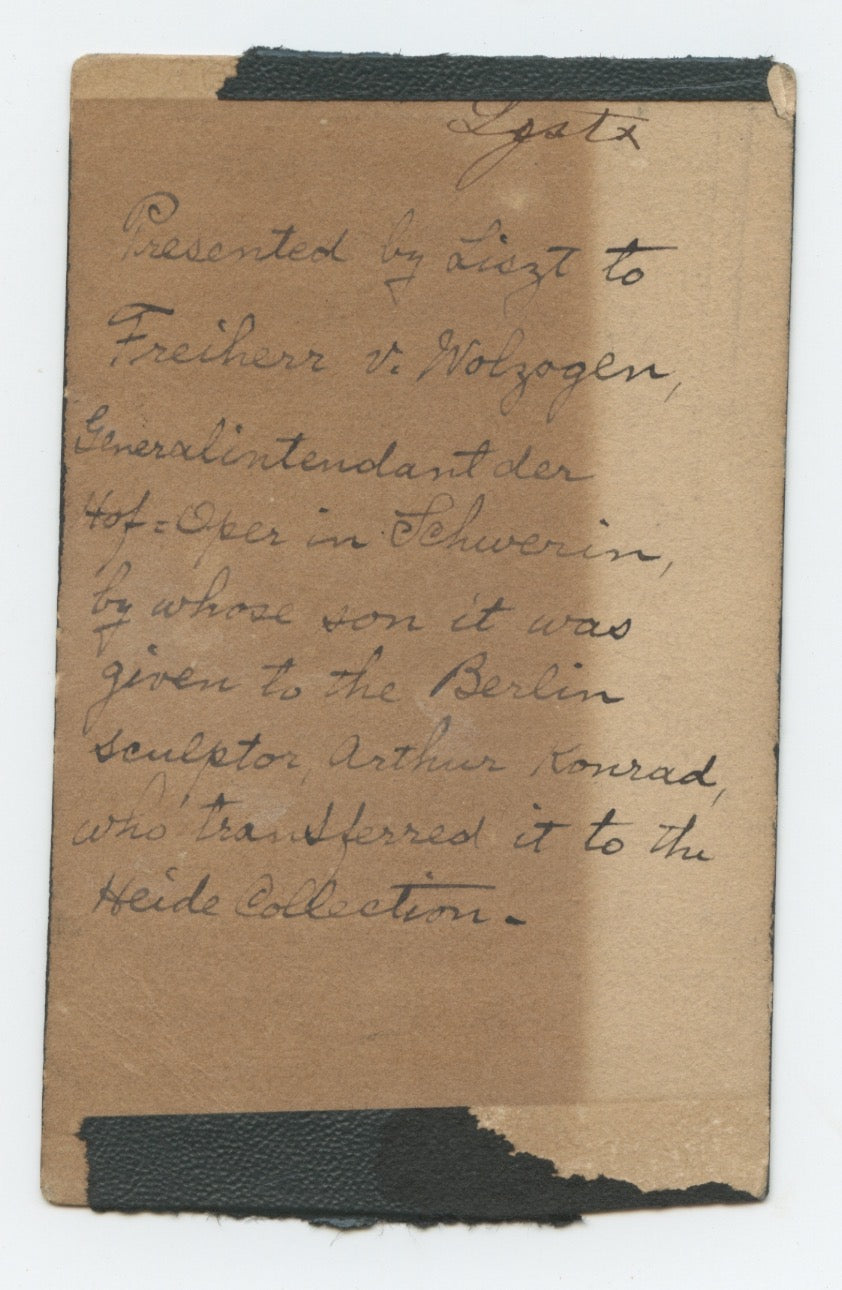 Presented by Liszt to
Freiherr v. Wolzogen,
Generalintendant der
Hof=Oper in Schwerin,
by whose son it was
given to the Berlin
sculptor, Arthur Konrad,
who transferred it to the
Heide Collection.-